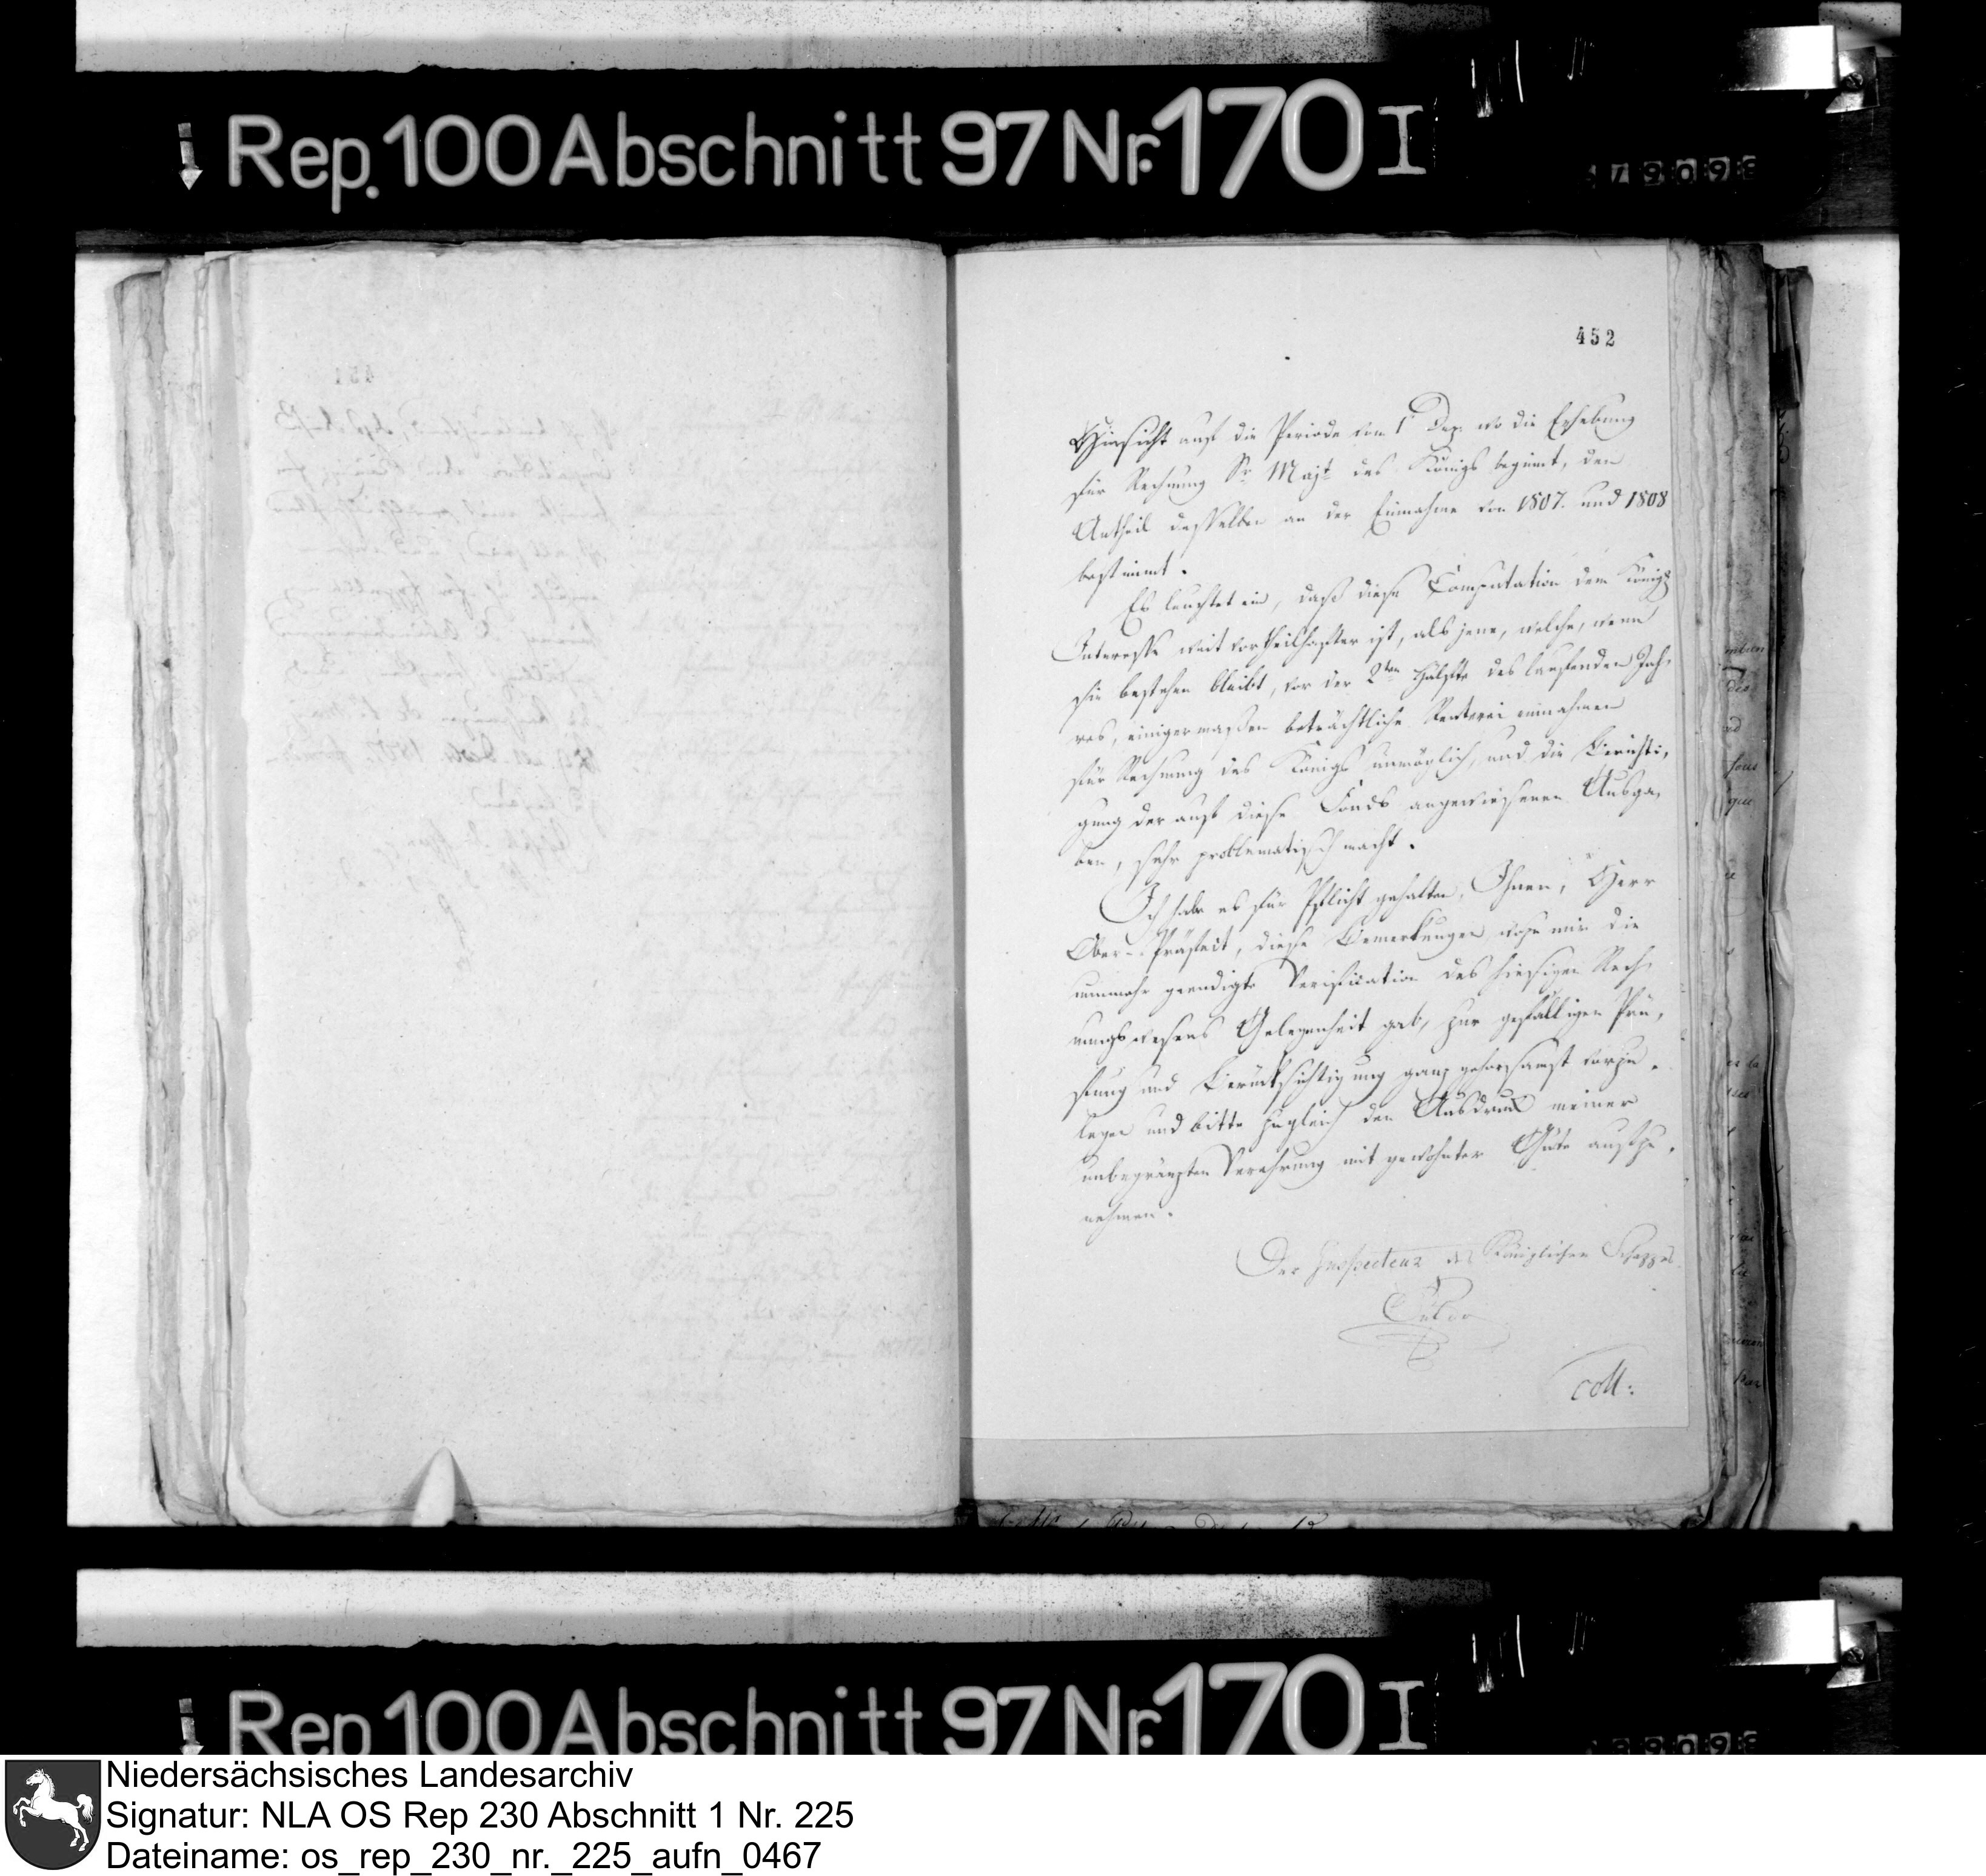 Rep. 100 Abschnitt 97 Nr. 170 I
452
Hinsicht auf die Periode vom 1 Dez. wo die Erhebung
für Rechnung Sr. Majt des Königs beginnt, den
Antheil desselben an der Einnahme von 1807. und 1808
bestimmt.
Es leuchtet ein, daß diese Computation dem Königl
Interesse weit vortheilhafter ist, als jene, welche, wenn
sie bestehen bleibt, vor der 2ten Hälfte des laufenden Jah-
res, einigermaßen beträchtliche Renterei einnahmen
für Rechnung des Königs unmöglich, und die Berichti-
gung der auf diese Fonds angewiesenen Ausga-
ben, sehr problematisch macht.
Ich habe es für Pflicht gehalten, Ihnen, Herr
Ober-Präfect, diese Bemerkungen, wozu mir die
nunmehr geendigte Verification des hiesigen Rech-
nungswesens Gelegenheit gab, zur gefälligen Prü-
fung und Berücksichtigung ganz gehorsamst vorzu-
legen und bitte zugleich den Ausdruck meiner
unbegränzten Verehrung mit gewohnter Güte aufzu-
nehmen.
Der Inspecteur des Königlichen Schazzes
coll:
Rep 100 Abschnitt 97 Nr. 170 I
Niedersächsisches Landesarchiv
Signatur: NLA OS Rep 230 Abschnitt 1 Nr. 225
Dateiname: os_rep_230_nr._225_aufn_0467